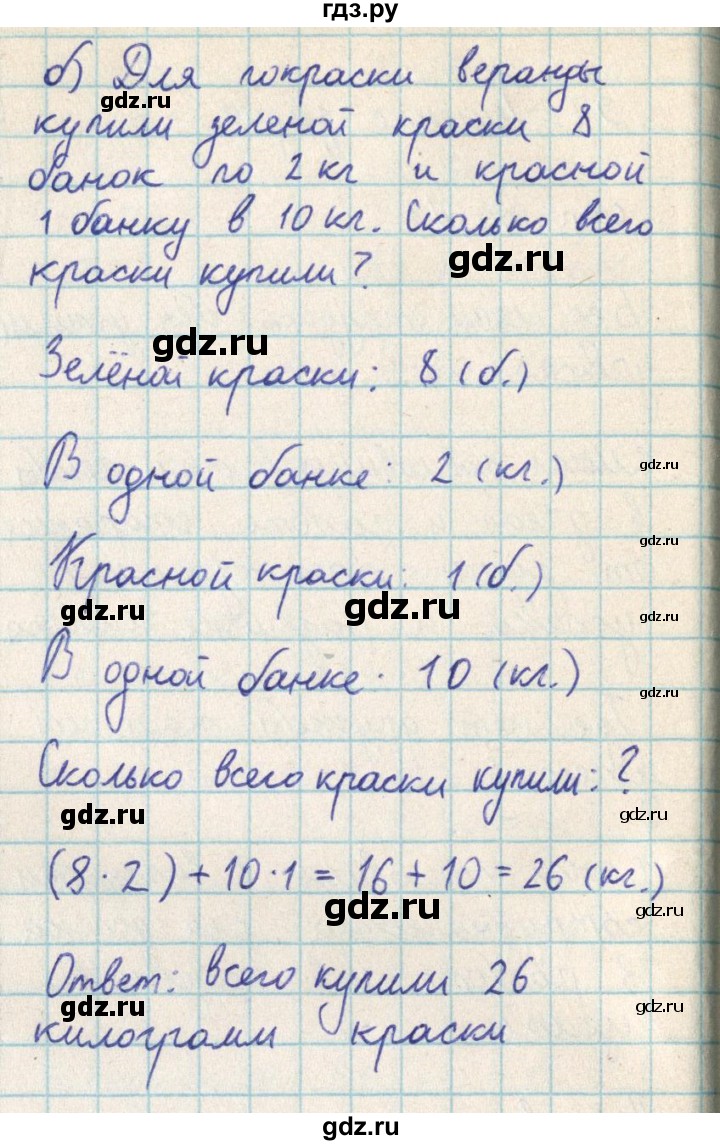 гдз.ру
б) Для покраски веранды
gdz.ru
купили зеленой краски 8
банок по 2 кг и красной
1 банку в 10 кг. Сколько всего
gdz.ru
краски купили?
gdz.ru
Зелёной краски: 8 (б.)
В одной банке: 2 (кг.)
gdz.ru
gdz.ru
Красной краски: 1 (б.)
gdz.ru gdz.ru gdz.ru
В одной банке: 10 (кг.)
gdz.ru
Сколько всего краски купили: ?
gdz.ru gdz.ru
(8 · 2) + 10 · 1 = 16 + 10 = 26 (кг.)
gdz.ru gdz.ru
Ответ: всего купили 26
gdz.ru gdz.ru
килограмм краски
gdz.ru gdz.ru gdz.ru